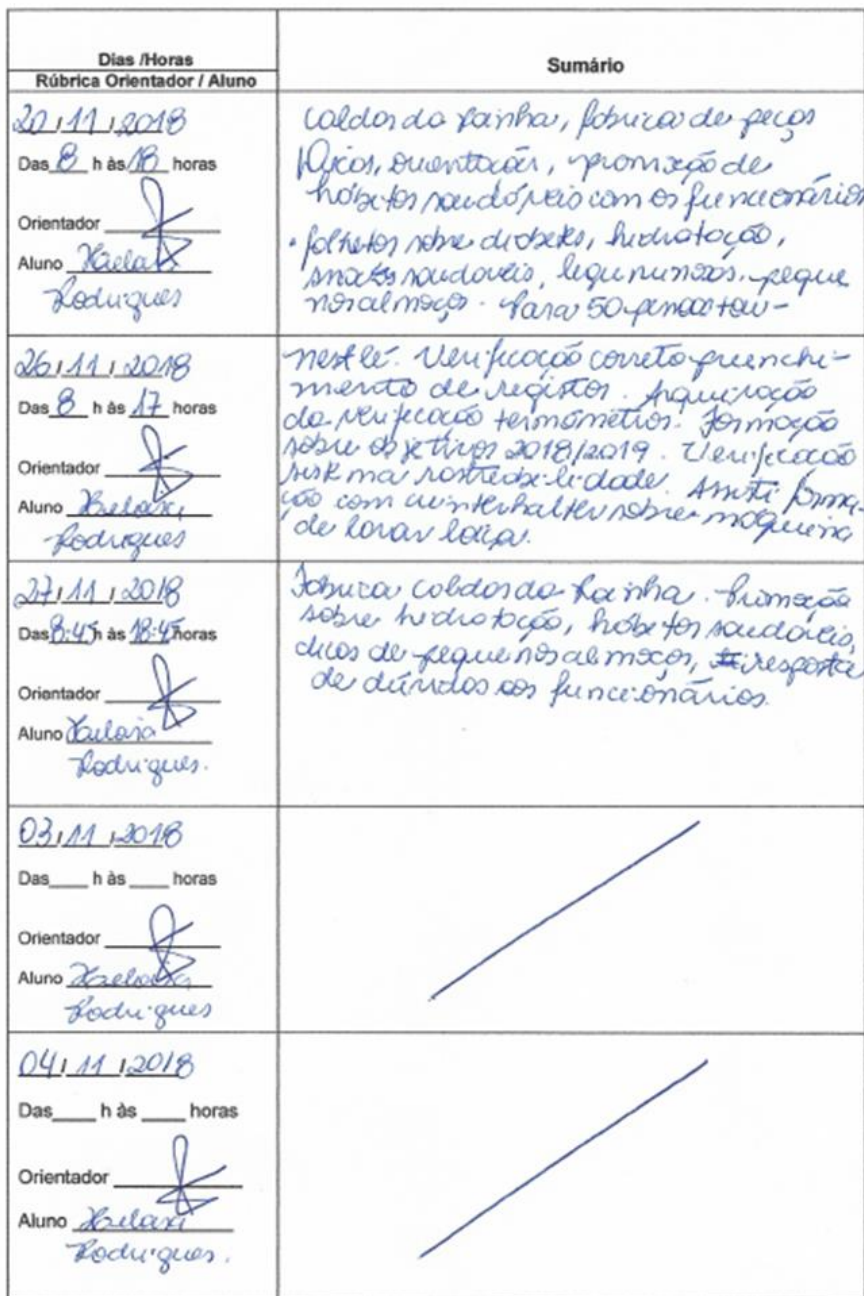 Dias /Horas
Rúbrica Orientador / Aluno
Sumário
20/11/2018
Das 8 h às 18 horas
Orientador
Aluno
Rodrigues
Caldas da Rainha, fabrica de peças
Dicas, orientação, promoção de
hábitos saudáveis com os funcionários
• folhetos sobre diabetes, hidratação,
snacks saudáveis, leguminosas, peque
nos almoços. Para 50 pessoas
26/11/2018
Das 8 h às 17 horas
Orientador
Aluno
Rodrigues
nestlé. Verificação correto preenchi-
mento de registos.
da verificação termómetros. Formação
sobre objetivos 2018/2019. Verificação
sistema rastreabilidade. Assisti forma-
ção com winterhalter sobre máquina
de lavar loiça.
27/11/2018
Das 8:45 h às 18:45 horas
Orientador
Aluno
Rodrigues.
Fabrica Caldas da Rainha. Promoção
sobre hidratação, hábitos saudáveis,
dicas de pequenos almoços, resposta
de dúvidas aos funcionários.
03/11/2018
Das h às horas
Orientador
Aluno
Rodrigues
04/11/2018
Das h às horas
Orientador
Aluno
Rodrigues.